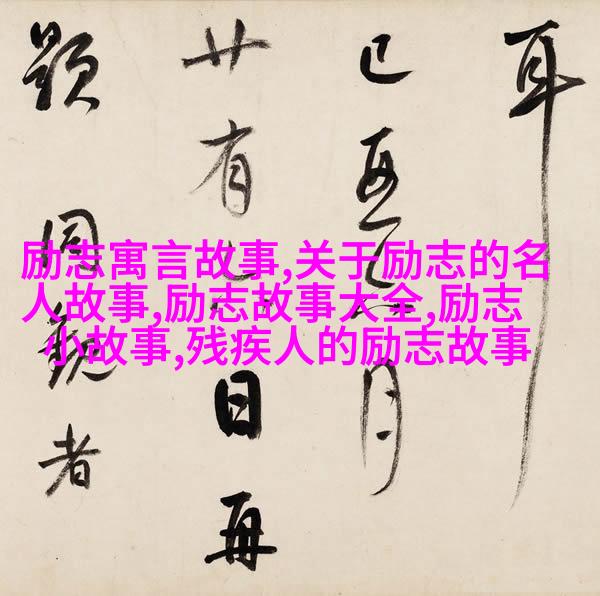 耳
已月
廿有日再
題同觀者
励志寓言故事,关于励志的名
人故事,励志故事大全,励志
小故事,残疾人的励志故事